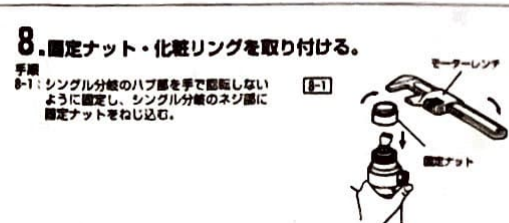 8.固定ナット・化粧リングを取り付ける。
手順
8-1：シングル分岐のハブ部を手で回転しない
ように固定し、シングル分岐のネジ部に
固定ナットをねじ込む。
8-1
モーターレンチ
固定ナット